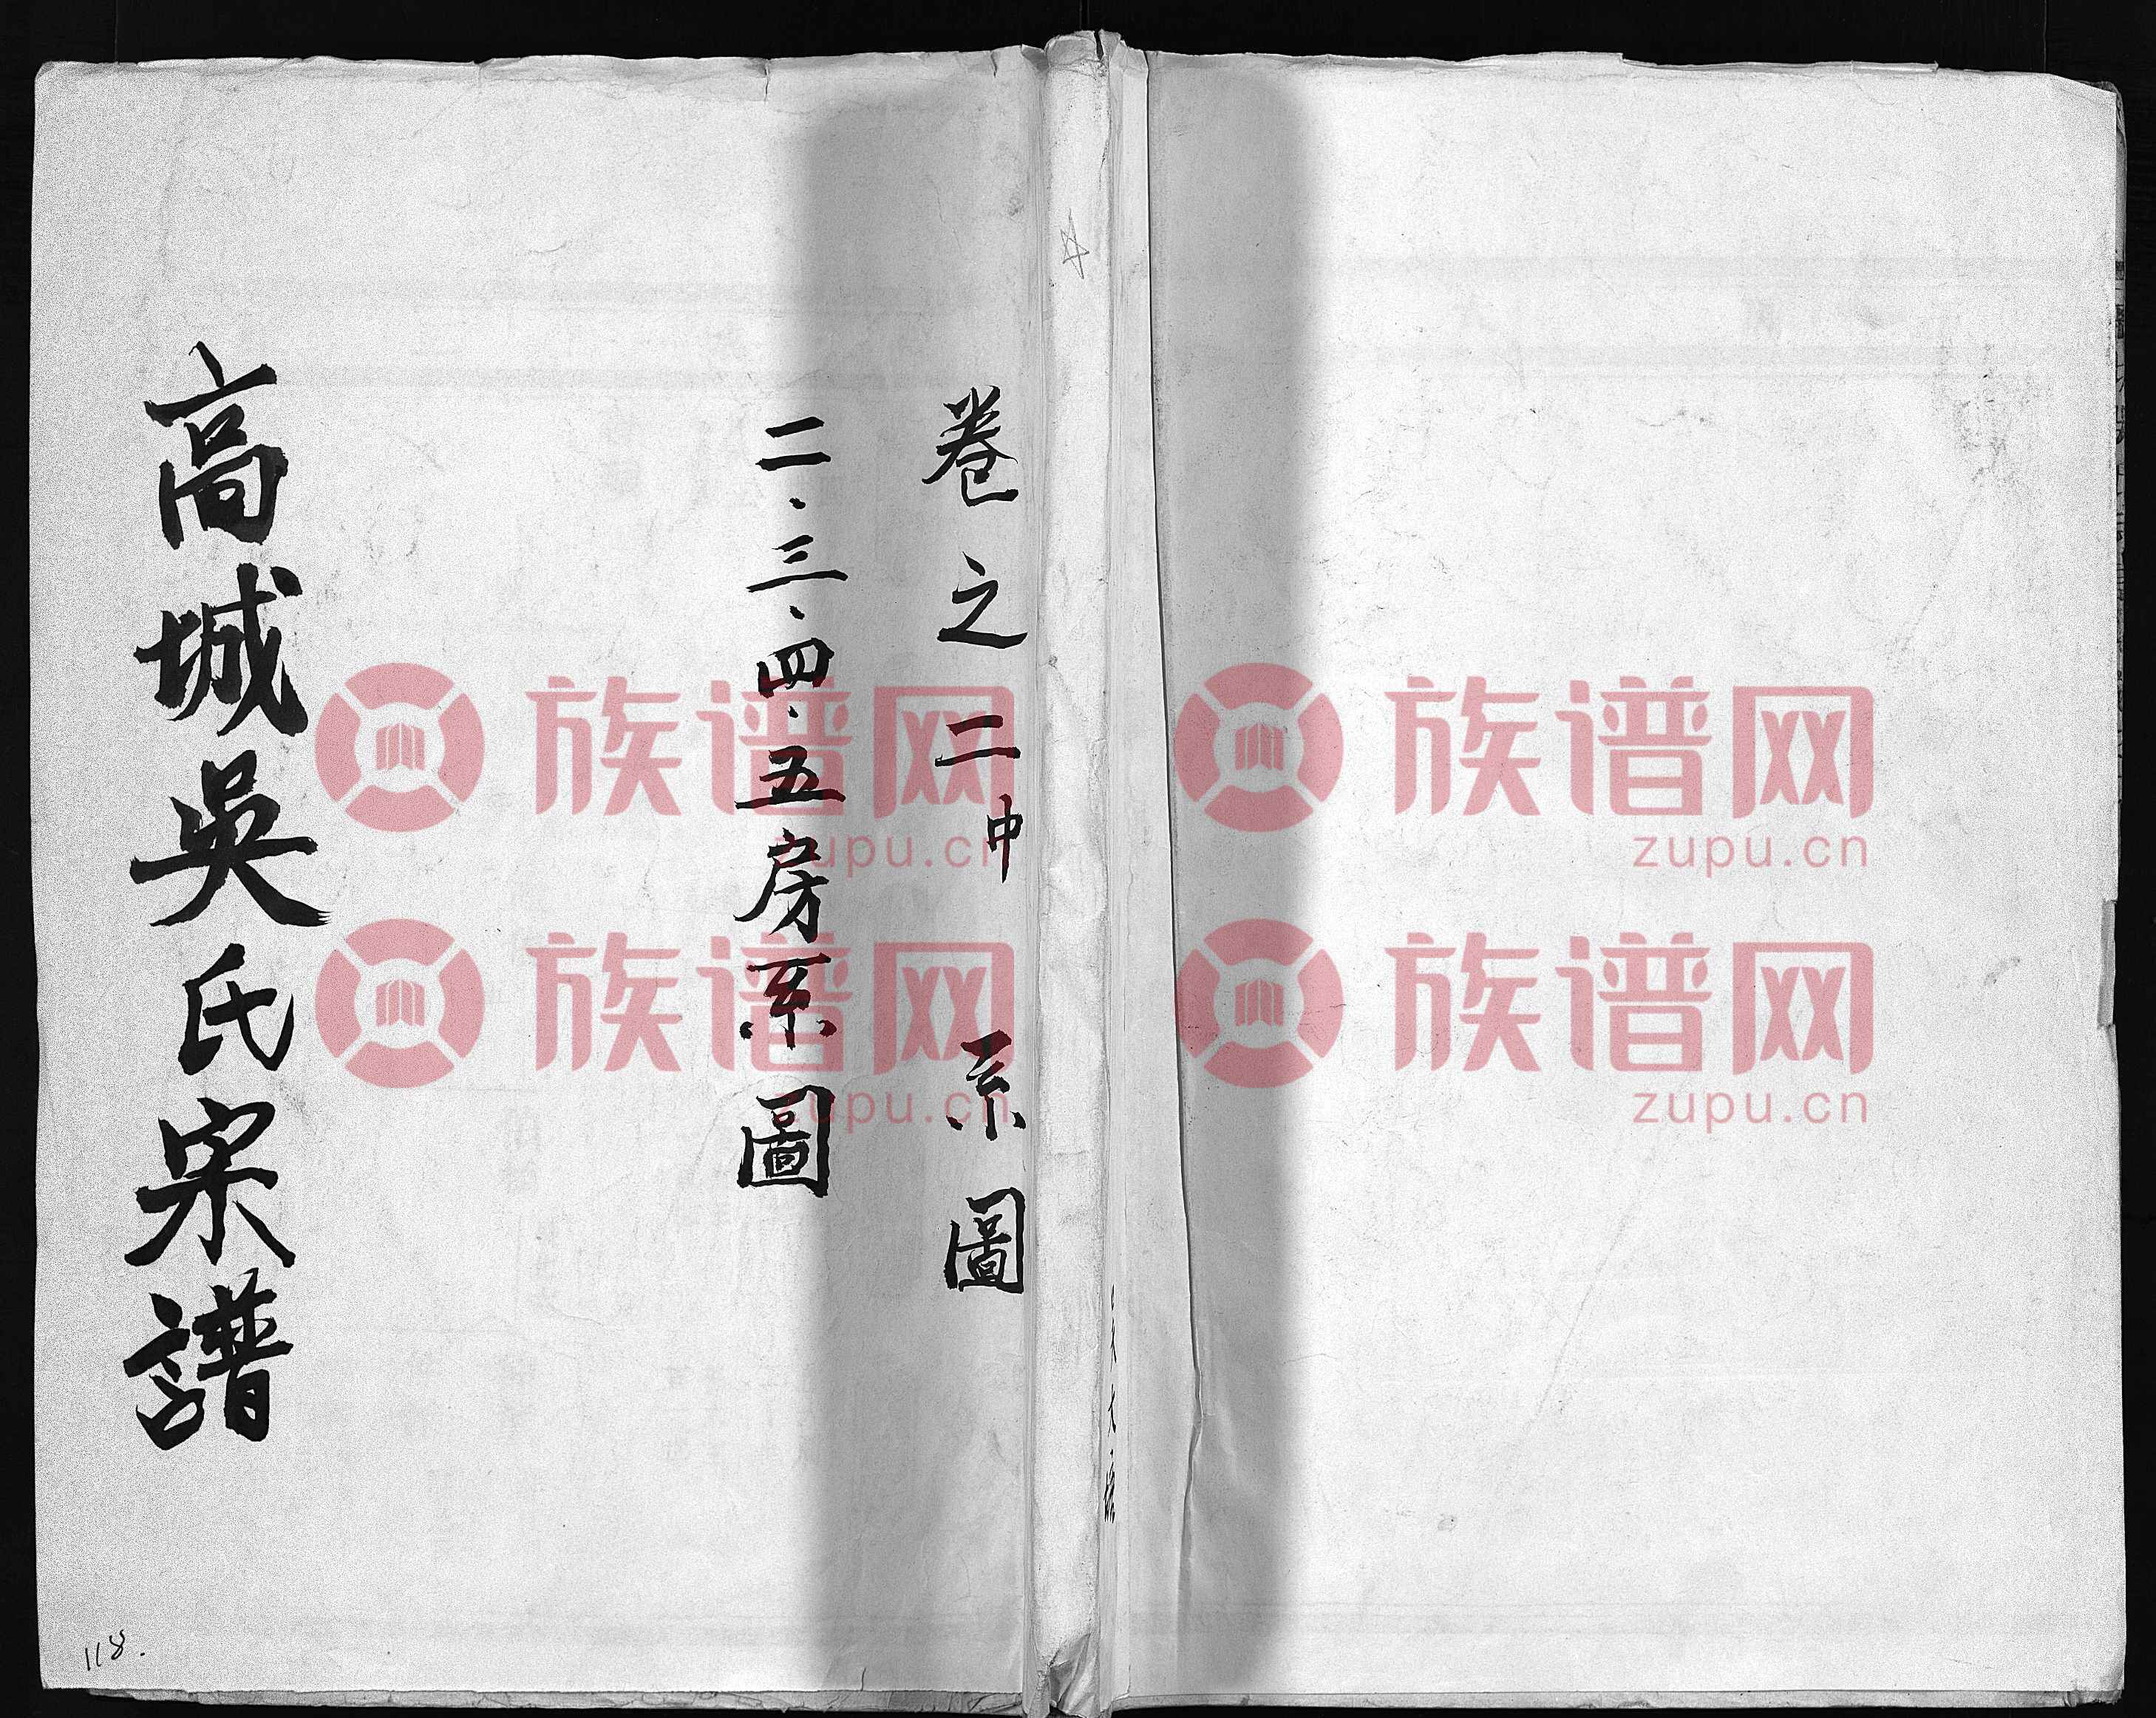 卷之二中 系圖
二·三·四·五房系圖
高城吳氏宗譜
118.
族谱网
zupu.cn
族谱网
zupu.cn
族谱网
zupu.cn
族谱网
zupu.cn